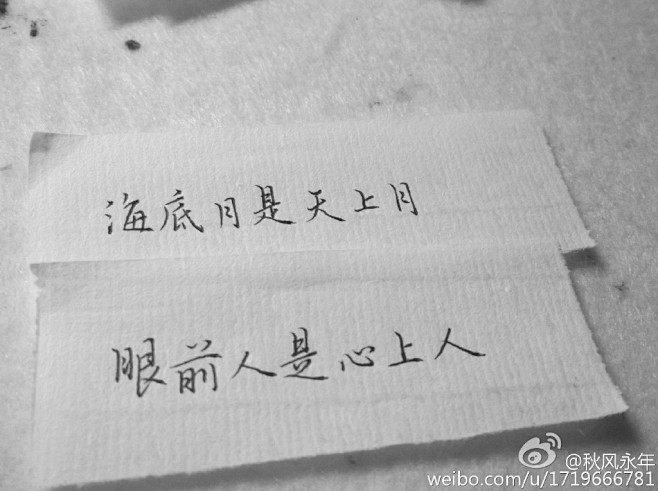 海底月是天上月
眼前人是心上人
@秋风永年
weibo.com/u/1719666781